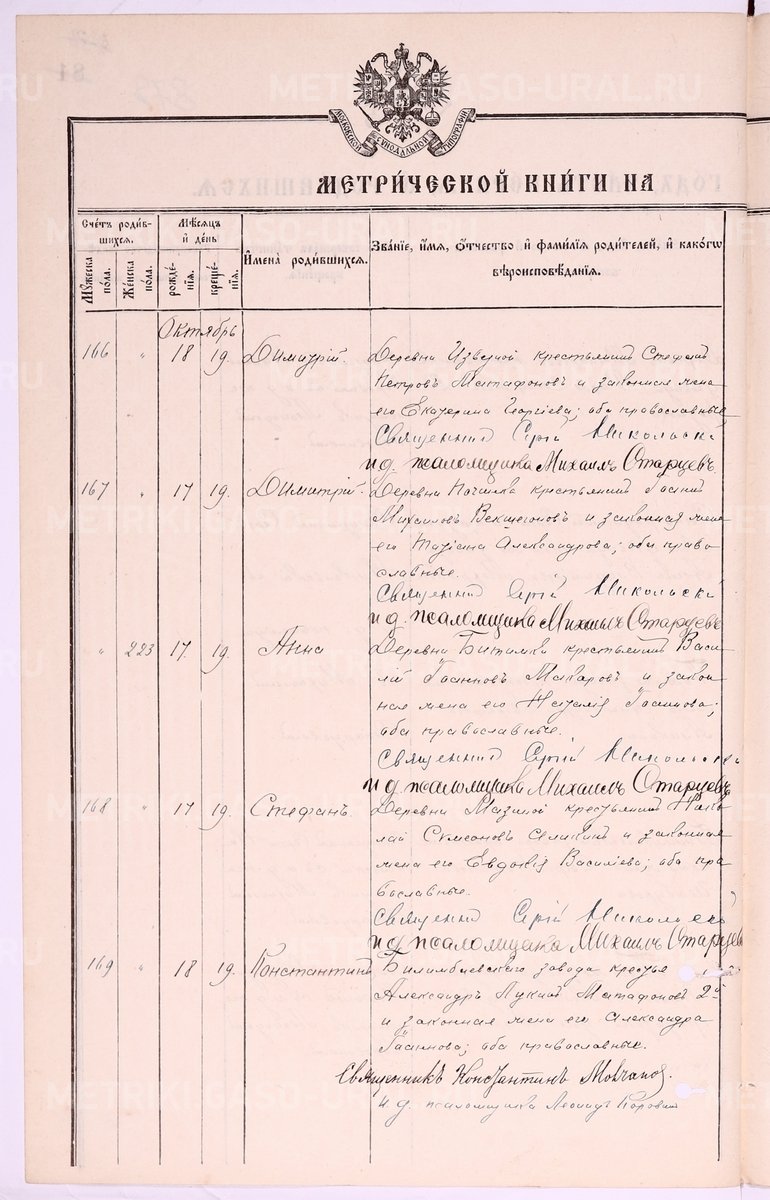 МОСКОВСКОЙ СѴНОДАЛЬНОЙ ТИПОГРАФІИ
МЕТРИ́ЧЕСКОЙ КНИ́ГИ НА
Сче́тъ роди́в-
шихся.
Мѣсяцъ
и̂ де́нь
Мꙋ́жеска
по́ла.
Же́нска
по́ла.
рожде́-
нїя.
креще́-
нїя.
И̂мена̀ роди́вшихся.
Зва́нїе, и̂́мя, ѻ҆́тчество и̂ фами́лїя роди́телей, и̂ како́гѡ
вѣроисповѣ́данїя.
Октябрь
166 " 18 19. Димитрій. Деревни Извѣзной крестьянинъ Стефанъ
Петровъ Матафоновъ и законная жена
его Екатерина Георгіева; оба православные
Священникъ Сергій Никольскій
И д. псаломщика Михаилъ Старцевъ.
167 " 17 19. Димитрій. Деревни Починка крестьянинъ Іоаннъ
Михаиловъ Векшегоновъ и законная жена
его Татіана Александрова; оба право
славные.
Священникъ Сергій Никольскій
И д. псаломщика Михаилъ Старцевъ
" 223 17. 19. Анна Деревни Битимки крестьянинъ Васи
лій Іоанновъ Макаровъ и закон
ная жена его Наталія Іоаннова;
оба православные.
Священникъ Сергій Никольскій
И д. псаломщика Михаилъ Старцевъ
168 " 17 19. Стефанъ. Деревни Мазиной крестьянинъ Нико
лай Симеоновъ и законная
жена его Евдокія Василіева; оба пра
вославные.
Священникъ Сергій Никольскій
И д. псаломщика Михаилъ Старцевъ
169 " 18 19. Константинъ Билимбаевскаго завода
Александръ Лукинъ Матафоновъ 2й
и законная жена его Александра
Іоаннова; оба православные.
Священникъ Константинъ Молчанов.
И д. псаломщика Леонидъ Коровинъ